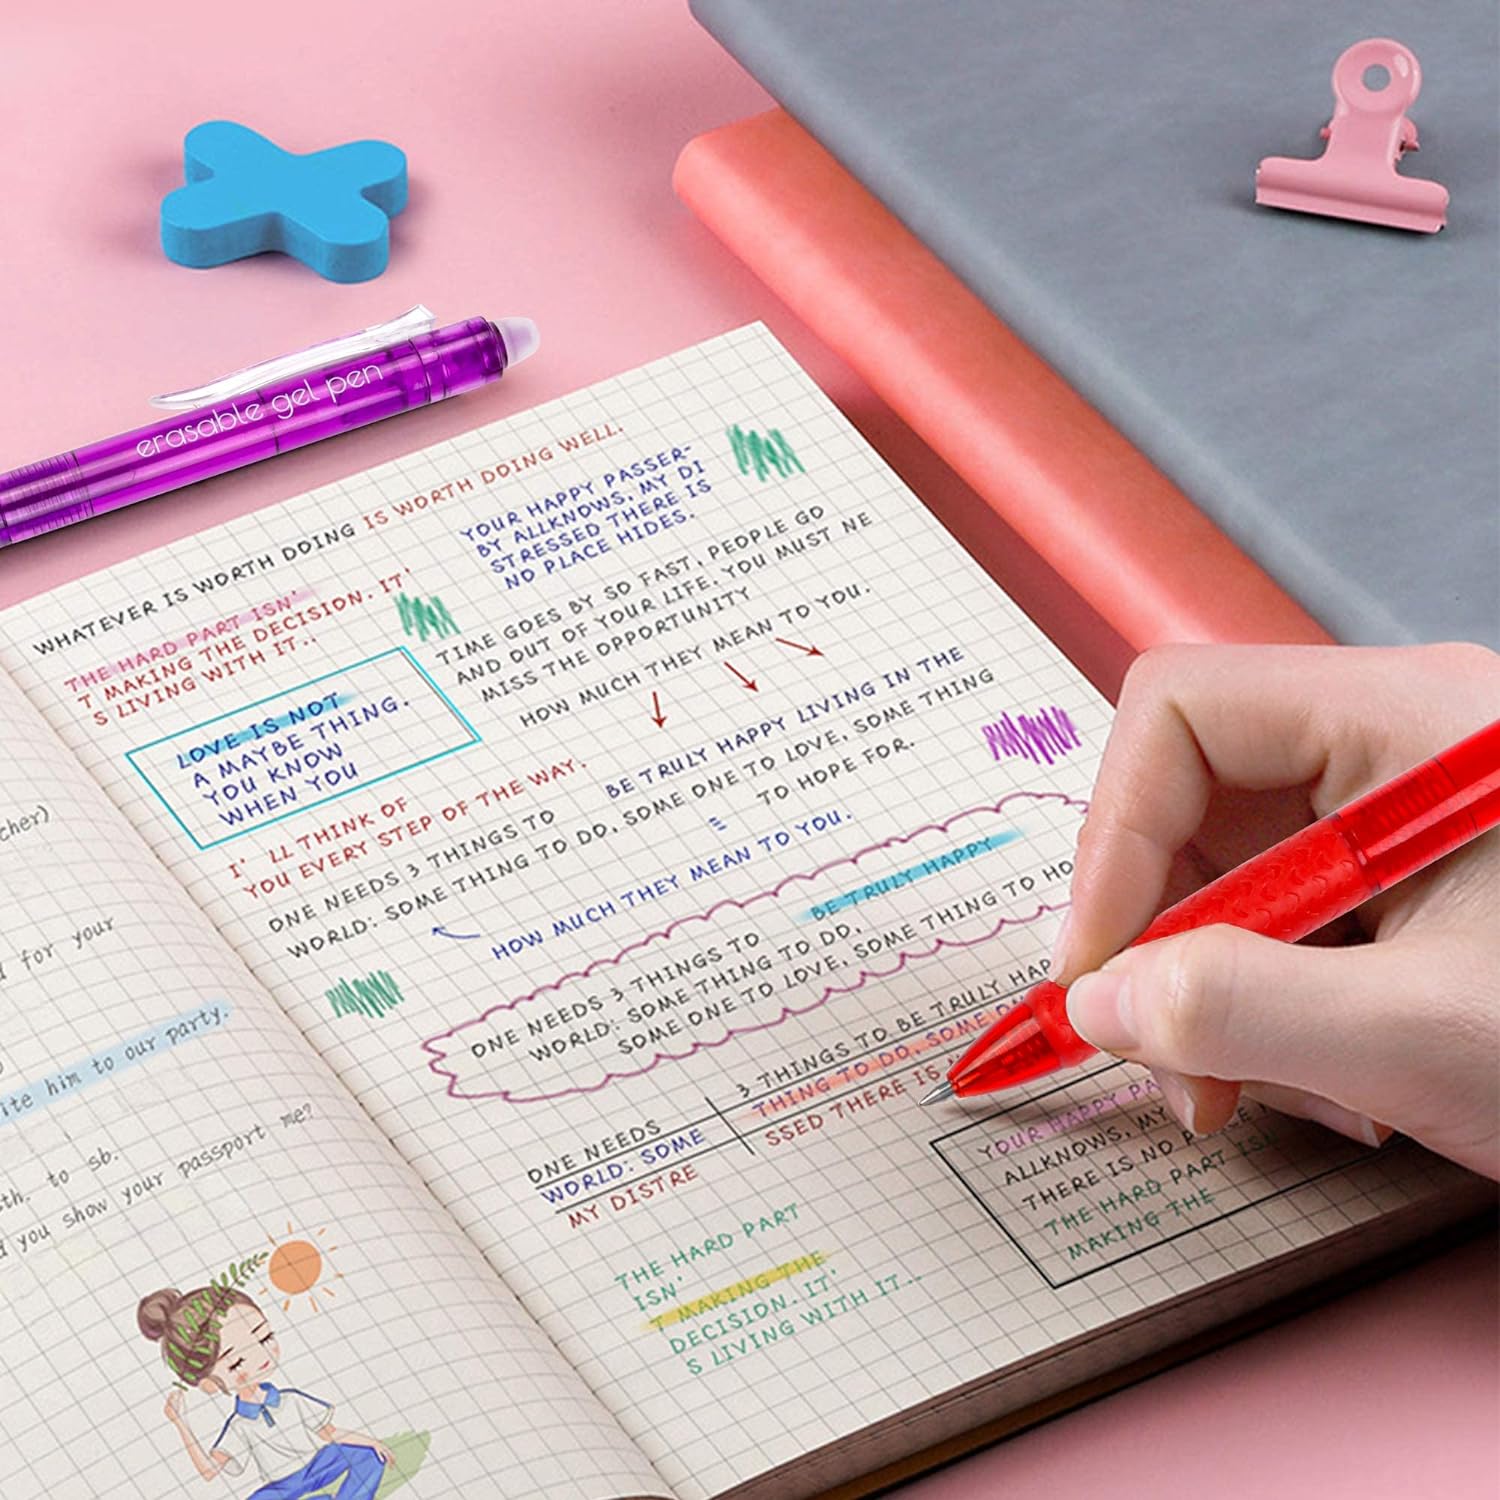 erasable gel pen
WHATEVER IS WORTH DOING IS WORTH DOING WELL.
THE HARD PART ISN'
T MAKING THE DECISION. IT'
S LIVING WITH IT..
YOUR HAPPY PASSER-
BY ALLKNOWS, MY DI
STRESSED THERE IS
NO PLACE HIDES.
TIME GOES BY SO FAST, PEOPLE GO
AND OUT OF YOUR LIFE. YOU MUST NE
MISS THE OPPORTUNITY
HOW MUCH THEY MEAN TO YOU.
LOVE IS NOT
A MAYBE THING.
YOU KNOW
WHEN YOU
I' LL THINK OF
YOU EVERY STEP OF THE WAY.
BE TRULY HAPPY LIVING IN THE
ONE NEEDS 3 THINGS TO
WORLD: SOME THING TO DO, SOME ONE TO LOVE, SOME THING
TO HOPE FOR.
HOW MUCH THEY MEAN TO YOU.
BE TRULY HAPPY
ONE NEEDS 3 THINGS TO
WORLD: SOME THING TO DO,
SOME ONE TO LOVE, SOME THING TO HO
ONE NEEDS
3 THINGS TO BE TRULY HAP
WORLD: SOME
THING TO DO, SOME
MY DISTRE
SSED THERE IS
YOUR HAPPY PA
ALLKNOWS, MY
THERE IS NO
THE HARD PART ISN
MAKING THE
THE HARD PART
ISN'
T MAKING THE
DECISION. IT'
S LIVING WITH IT..
cher)
for your
ite him to our party.
sth. to sb.
d you show your passport me?